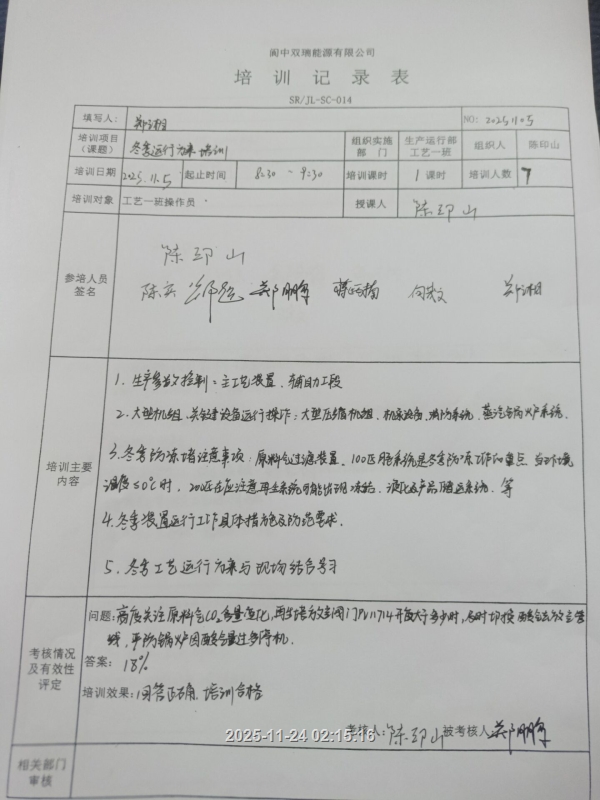 阆中双瑞能源有限公司
培训记录表
SR/JL-SC-014
填写人: 郑湘 NO: 20251105
培训项目(课题) 冬季运行方案培训 组织实施部门 生产运行部工艺一班 组织人 陈印山
培训日期 2025.11.5 起止时间 8:30 - 9:30 培训课时 1 课时 培训人数 7
培训对象 工艺一班操作员 授课人 陈印山
参培人员签名
陈印山
陈实 郑鹏 向 郑湘
培训主要内容
1. 生产参数控制: 主工艺装置、辅助工段
2. 大型机组、关键设备运行操作: 大型压缩机组、机泵设备、消防系统、蒸汽锅炉系统.
3. 冬季防冻堵注意事项: 原料气过滤装置、100区脱系统是冬季防冻工作的重点. 当环境
温度≤0℃时, 200区在应注意再生系统可能出现冻结、液化及产品储运系统. 等
4. 冬季装置运行工作具体措施及防范要求.
5. 冬季工艺运行方案与现场结合学习
考核情况及有效性评定
问题: 高度关注原料气CO₂含量变化, 再生塔放空阀门PV11714开度大于多少时, 及时切换酸气放空管
线, 平防锅炉因酸含量过多停机.
答案: 18%
培训效果: 回答正确, 培训合格
考核人: 陈印山 被考核人 郑鹏
2025-11-24 02:15:16
相关部门审核